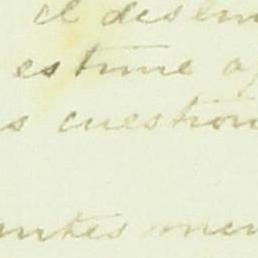 el desem
estime o
s cuestion
entes men